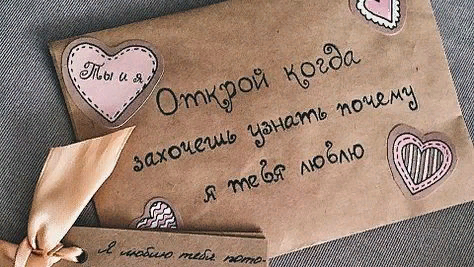 Ты и я
Открой когда
захочешь узнать почему
я тебя люблю
Я люблю тебя пото-